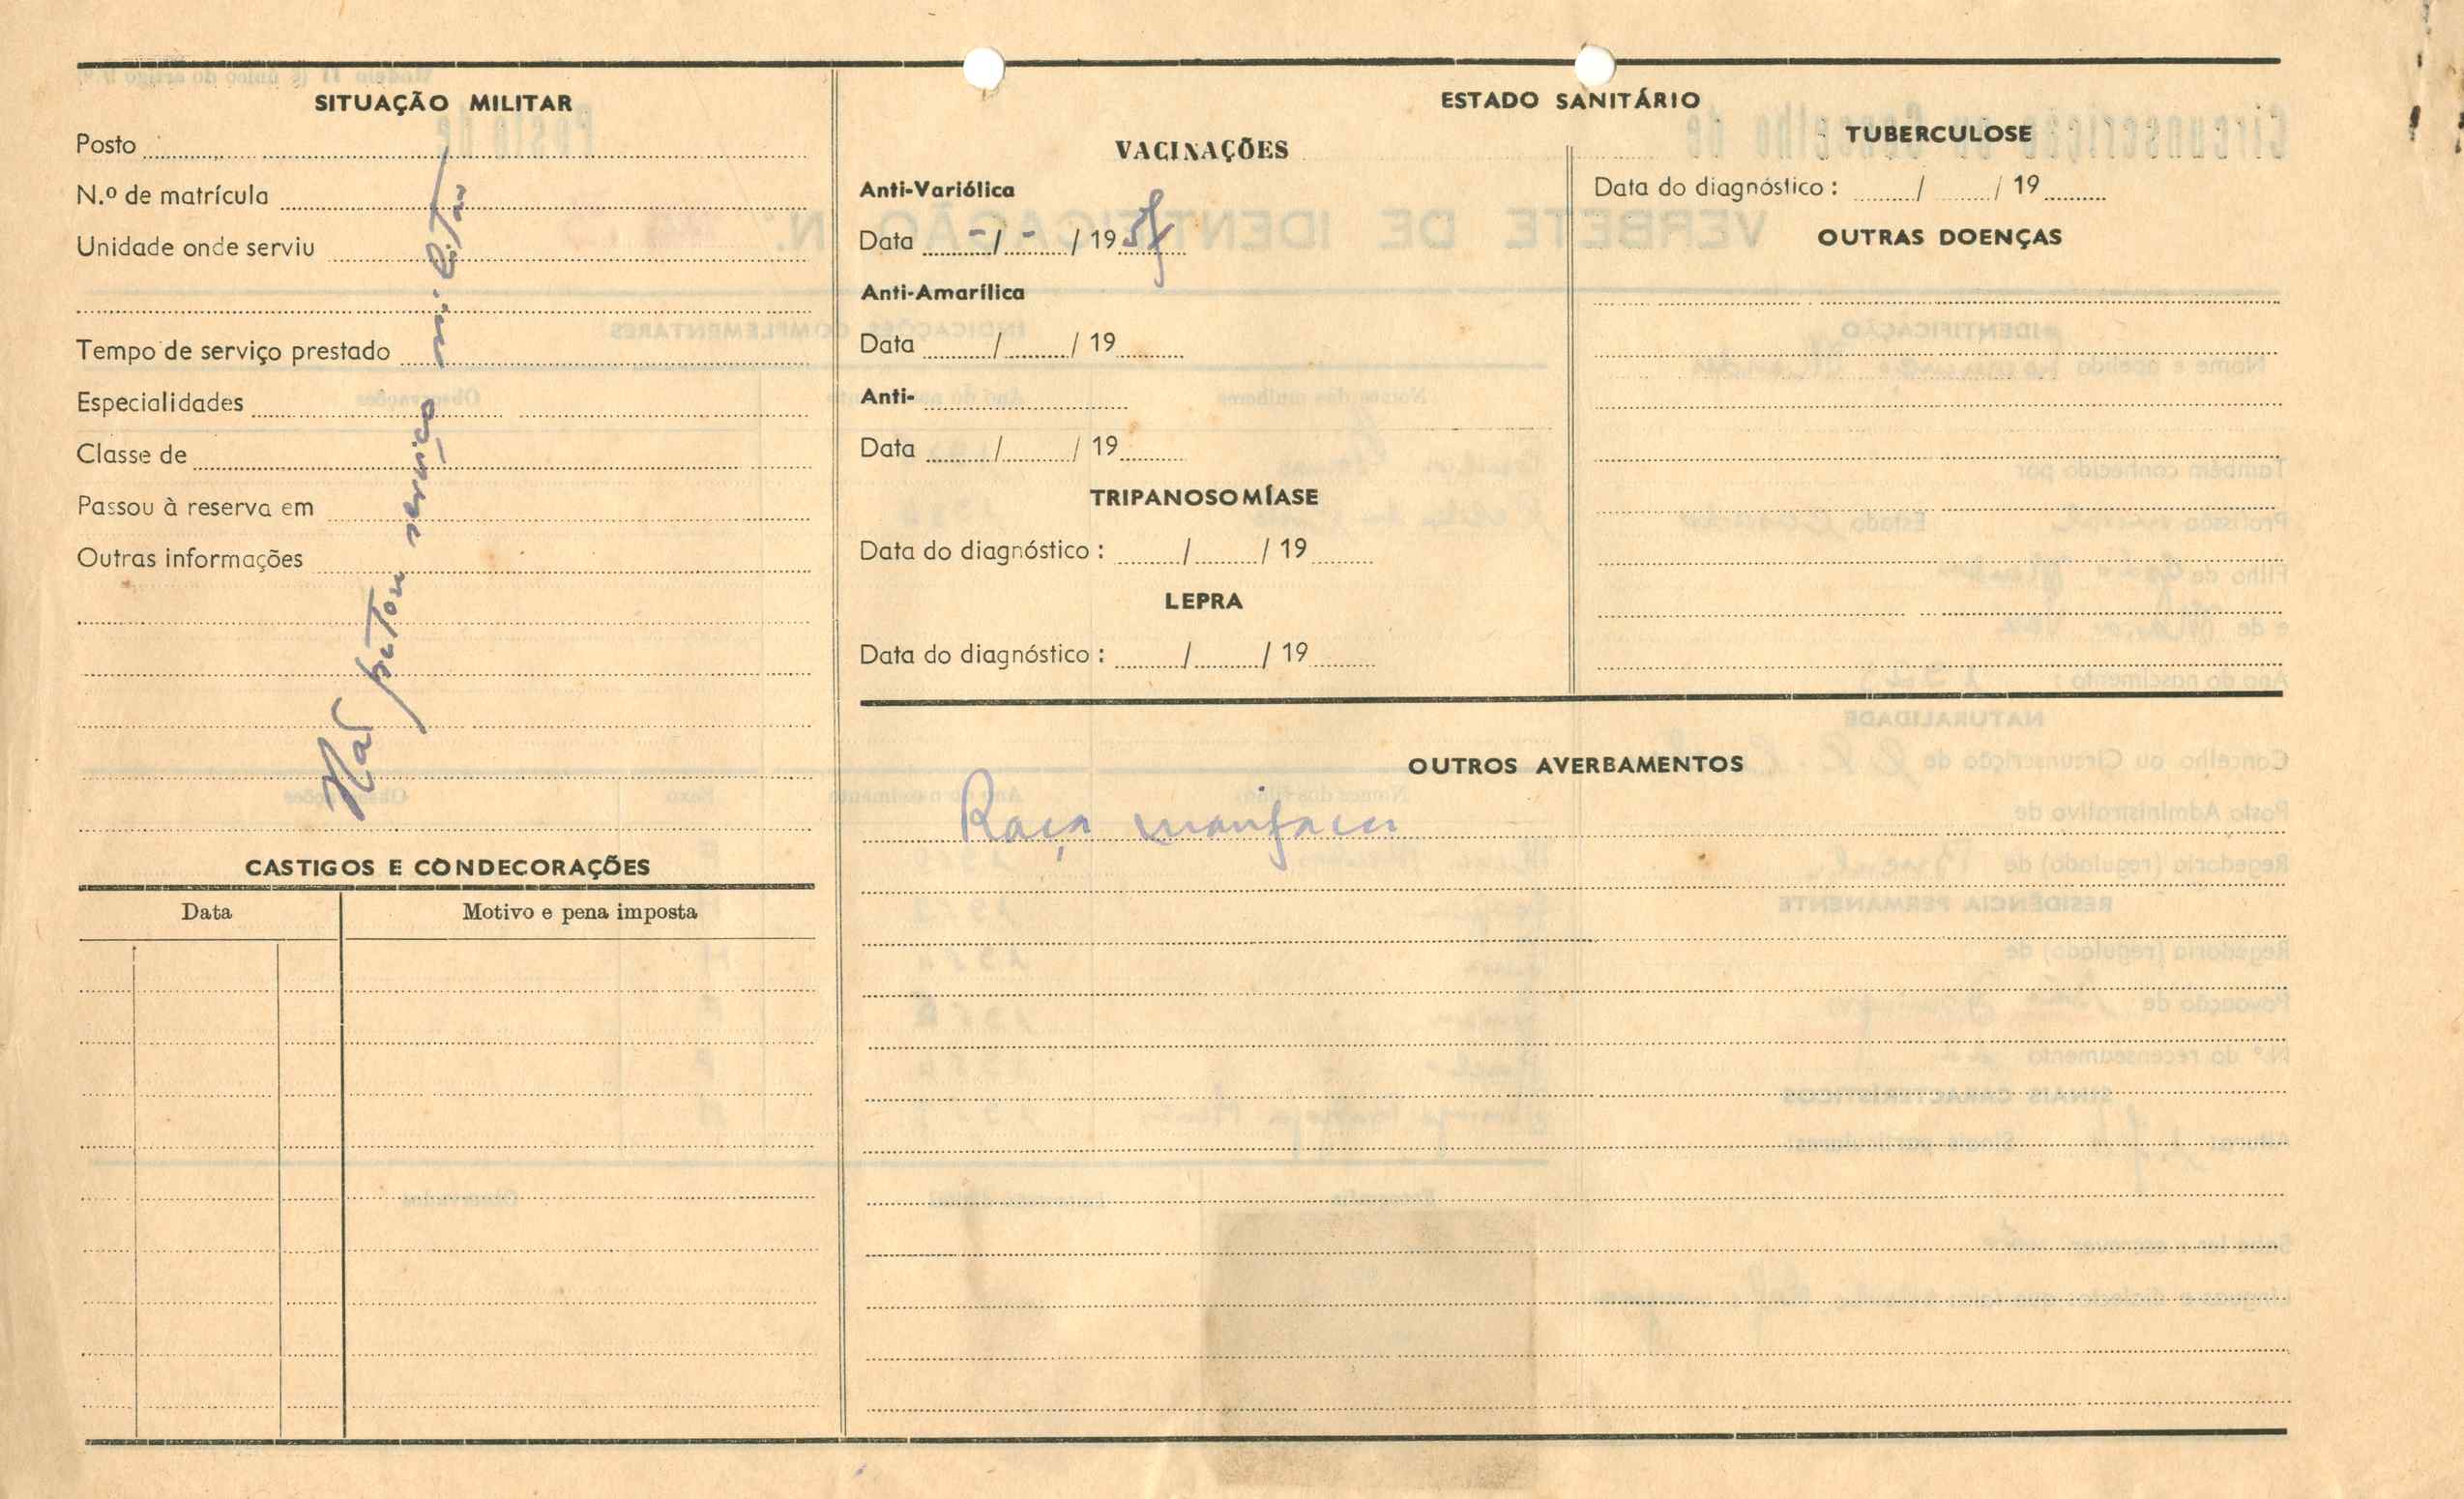 SITUAÇÃO MILITAR
Posto
N.º de matrícula
Unidade onde serviu
Tempo de serviço prestado
Especialidades
Classe de
Passou à reserva em
Outras informações
Não prestou serviço militar
CASTIGOS E CONDECORAÇÕES
Data Motivo e pena imposta
ESTADO SANITÁRIO
VACINAÇÕES
Anti-Variólica
Data - / - / 19
Anti-Amarílica
Data / / 19
Anti-
Data / / 19
TRIPANOSOMÍASE
Data do diagnóstico : / / 19
LEPRA
Data do diagnóstico : / / 19
TUBERCULOSE
Data do diagnóstico : / / 19
OUTRAS DOENÇAS
OUTROS AVERBAMENTOS
Raça